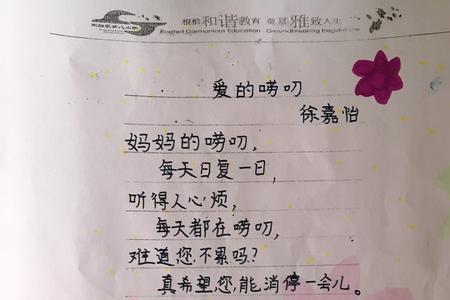 根植和谐教育 奠基雅致人生
Rooted Garmonious Education Groundbreaking Elegant Life
爱的唠叨
徐嘉怡
妈妈的唠叨，
每天日复一日，
听得人心烦，
每天都在唠叨，
难道您不累吗？
真希望您能消停一会儿。